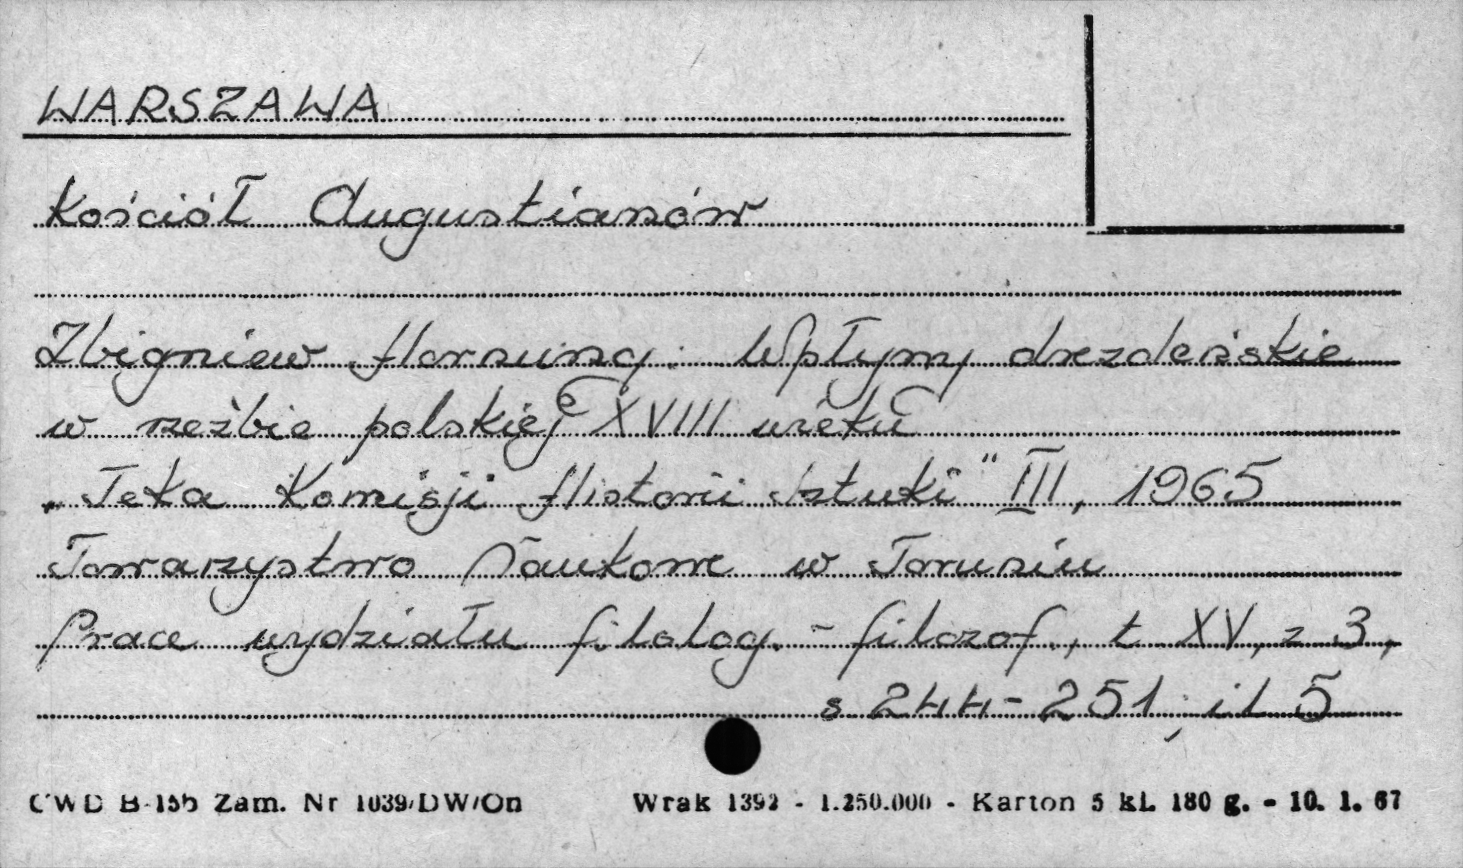 WARSZAWA
Kościół Augustianów
Zbigniew Hornung: Wpływy drezdeńskie
w rzeźbie polskiej XVIII wieku
„Teka Komisji Historii Sztuki" III, 1965
Towarzystwo Naukowe w Toruniu
Prace wydziału filolog.-filozof., t XV, z 3,
s 244-251, il 5
CWD B-155 Zam. Nr 1039/DW/On Wrak 1392 - 1.250.000 - Karton 5 kl. 180 g. - 10. 1. 67